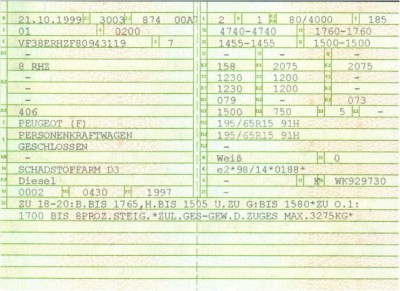 21.10.1999 3003 874 00A7 2 1 80/4000 185
01 0200 4740-4740 1760-1760
VF38ERHZF80943119 7 1455-1455 1500-1500
- - -
8 RHZ 158 2075 2075
- 1230 1200 -
- 1230 1200 -
- 079 - 073
406 1500 750 5 -
PEUGEOT (F) 195/65R15 91H
PERSONENKRAFTWAGEN 195/65R15 91H
GESCHLOSSEN -
- Weiß 0
SCHADSTOFFARM D3 e2*98/14*0188*
Diesel - K WK929730
0002 0430 1997 -
ZU 18-20:B.BIS 1765,H.BIS 1505 U.ZU G:BIS 1580*ZU O.1:
1700 BIS 8PROZ.STEIG.*ZUL.GES-GEW.D.ZUGES MAX.3275KG*